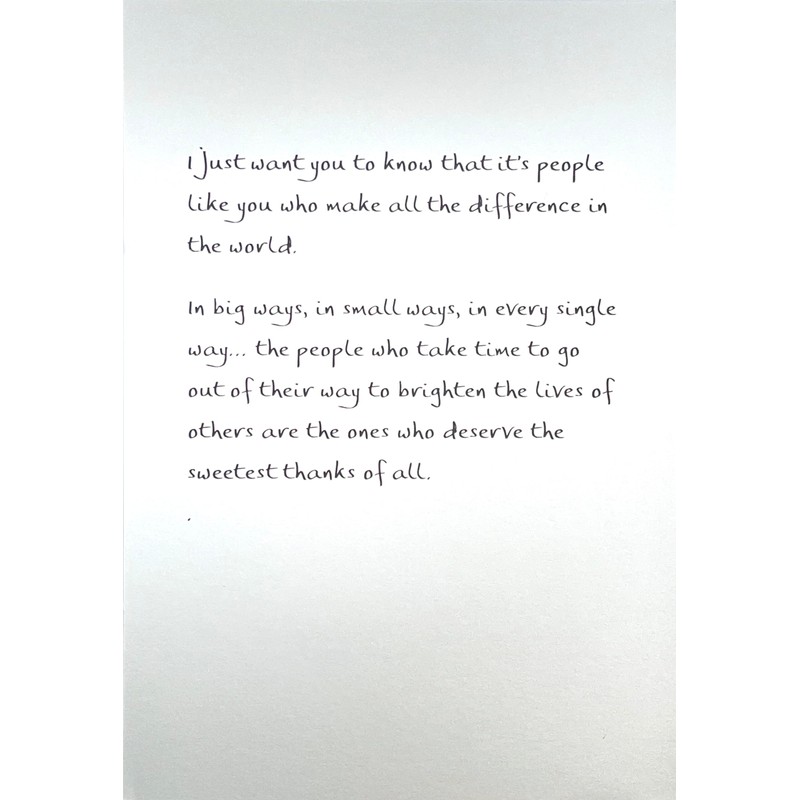 I just want you to know that it's people
like you who make all the difference in
the world.
In big ways, in small ways, in every single
way... the people who take time to go
out of their way to brighten the lives of
others are the ones who deserve the
sweetest thanks of all.
.